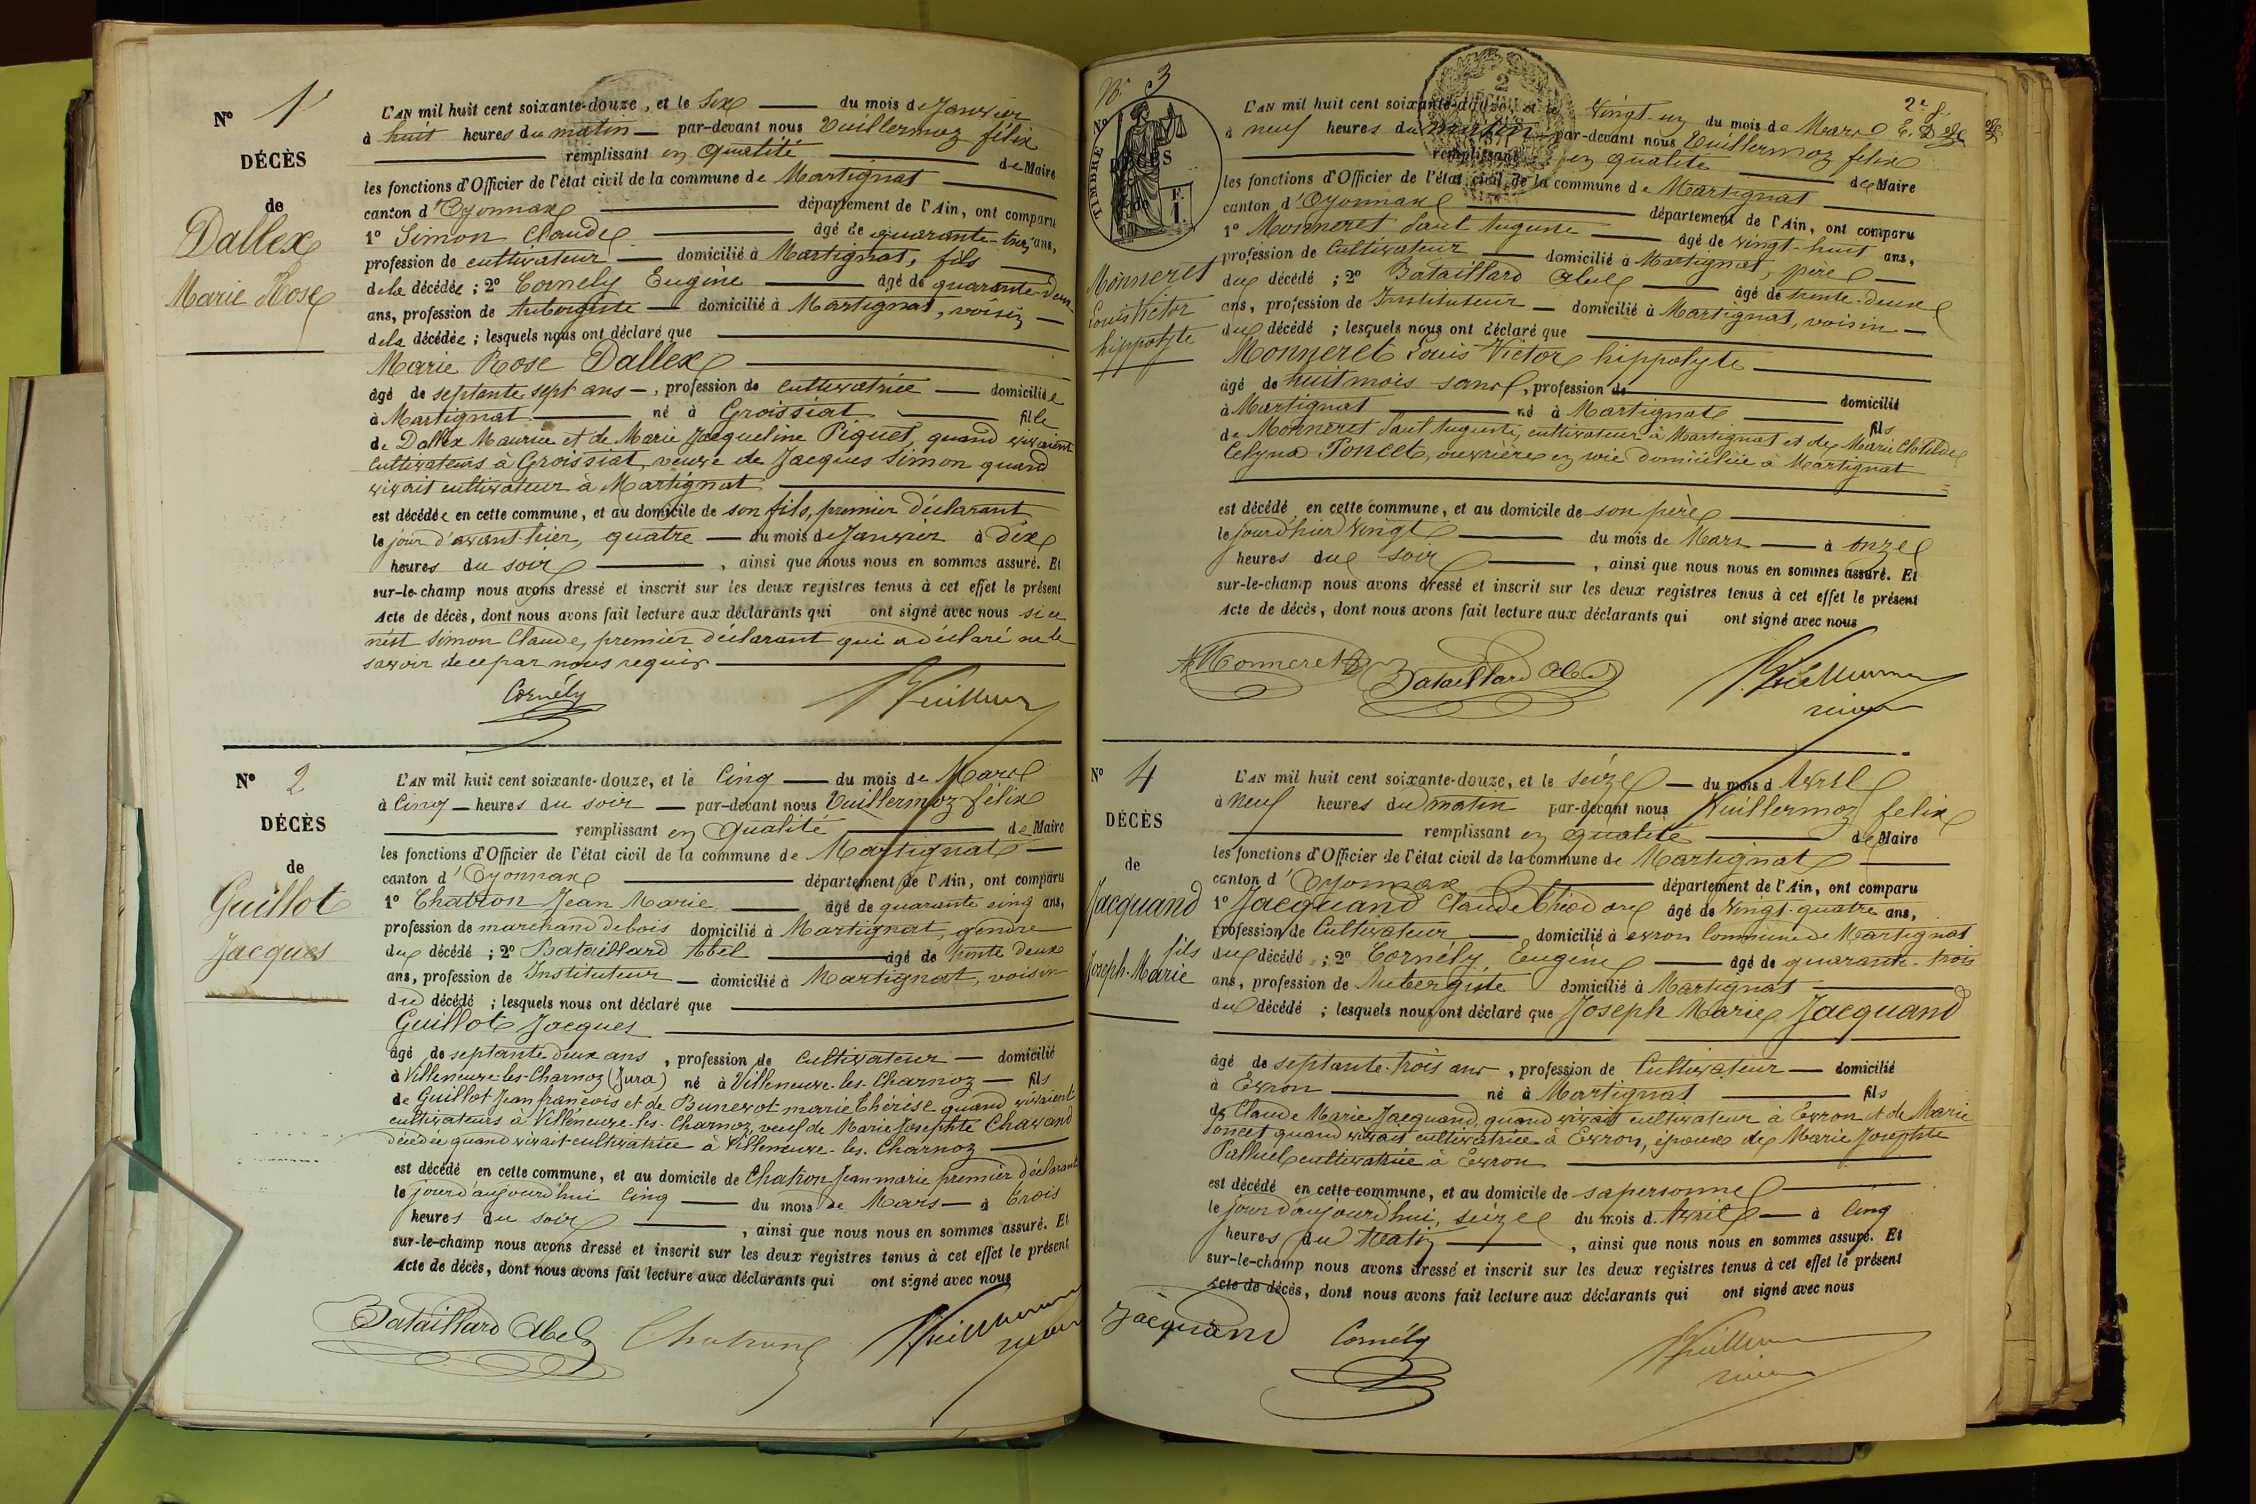 N° 1
DÉCÈS
de
Dallex
Marie Rose
L'AN mil huit cent soixante-douze, et le Six du mois de Janvier
à huit heures du matin par-devant nous Vuillermoz félix
remplissant en qualité de Maire
les fonctions d'Officier de l'état civil de la commune de Martignat
canton d'Oyonnax département de l'Ain, ont comparu
1° Simon Claude âgé de quarante-trois ans,
profession de cultivateur domicilié à Martignat, fils
de la décédée ; 2° Cornely Eugène âgé de quarante-deux
ans, profession de Aubergiste domicilié à Martignat, voisin
de la décédée ; lesquels nous ont déclaré que
Marie Rose Dallex
âgé de septante sept ans, profession de cultivatrice domiciliée
à Martignat né à Groissiat fille
de Dallex Maurice et de Marie Jacqueline Piquet, quand vivaient
cultivateurs à Groissiat, veuve de Jacques Simon quand
vivait cultivateur à Martignat
est décédée en cette commune, et au domicile de son fils, premier déclarant
le jour d'avant-hier, quatre du mois de Janvier à dix
heures du soir, ainsi que nous nous en sommes assuré. Et
sur-le-champ nous avons dressé et inscrit sur les deux registres tenus à cet effet le présent
Acte de décès, dont nous avons fait lecture aux déclarants qui ont signé avec nous si ce
n'est Simon Claude, premier déclarant qui a déclaré ne le
savoir de ce par nous requis
Cornély
N° 2
DÉCÈS
de
Guillot
Jacques
L'AN mil huit cent soixante-douze, et le Cinq du mois de Mars
à Cinq heures du soir par-devant nous Vuillermoz félix
remplissant en qualité de Maire
les fonctions d'Officier de l'état civil de la commune de Martignat
canton d'Oyonnax département de l'Ain, ont comparu
1° Chatron Jean Marie âgé de quarante cinq ans,
profession de marchand de bois domicilié à Martignat, gendre
du décédé ; 2° Bataillard Abel âgé de trente deux
ans, profession de Instituteur domicilié à Martignat, voisin
du décédé ; lesquels nous ont déclaré que
Guillot Jacques
âgé de septante deux ans, profession de Cultivateur domicilié
à Villeneuve-les-Charnoz (Jura) né à Villeneuve-les-Charnoz fils
de Guillot Jean françois et de Bunevot marie Thérèse quand vivaient
cultivateurs à Villeneuve-les-Charnoz, veuf de Marie Josephte Chavand
décédée quand vivait cultivatrice à Villeneuve-les-Charnoz
est décédé en cette commune, et au domicile de Chatron Jean marie premier déclarant
le jour d'aujourd'hui cinq du mois de Mars à trois
heures du soir, ainsi que nous nous en sommes assuré. Et
sur-le-champ nous avons dressé et inscrit sur les deux registres tenus à cet effet le présent
Acte de décès, dont nous avons fait lecture aux déclarants qui ont signé avec nous
Bataillard Abel Chatron
N° 3
TIMBRE N°
DÉCÈS
de
F. 1.
Monneret
Louis Victor
hippolyte
2e f.
L'AN mil huit cent soixante-douze, et le Vingt-un du mois de Mars
à neuf heures du matin par-devant nous Vuillermoz felix
remplissant en qualité de Maire
les fonctions d'Officier de l'état civil de la commune de Martignat
canton d'Oyonnax département de l'Ain, ont comparu
1° Monneret Paul Auguste âgé de vingt-huit ans,
profession de Cultivateur domicilié à Martignat, père
du décédé ; 2° Bataillard Abel âgé de trente-deux
ans, profession de Instituteur domicilié à Martignat, voisin
du décédé ; lesquels nous ont déclaré que
Monneret Louis Victor hippolyte
âgé de huit mois sans, profession de domicilié
à Martignat né à Martignat fils
de Monneret Paul Auguste, cultivateur à Martignat et de Marie Clotilde
Celyna Poncet, ouvrière en soie domiciliée à Martignat
est décédé en cette commune, et au domicile de son père
le jour d'hier vingt du mois de Mars à onze
heures du soir, ainsi que nous nous en sommes assuré. Et
sur-le-champ nous avons dressé et inscrit sur les deux registres tenus à cet effet le présent
Acte de décès, dont nous avons fait lecture aux déclarants qui ont signé avec nous
Monneret Bataillard Abel
N° 4
DÉCÈS
de
Jacquand
fils
Joseph-Marie
L'AN mil huit cent soixante-douze, et le seize du mois d'Avril
à neuf heures du matin par-devant nous Vuillermoz felix
remplissant en qualité de Maire
les fonctions d'Officier de l'état civil de la commune de Martignat
canton d'Oyonnax département de l'Ain, ont comparu
1° Jacquand Claude Théodore âgé de vingt-quatre ans,
profession de Cultivateur domicilié à evron Commune de Martignat
du décédé ; 2° Cornély Eugène âgé de quarante-trois
ans, profession de Aubergiste domicilié à Martignat
du décédé ; lesquels nous ont déclaré que Joseph Marie Jacquand
âgé de septante-trois ans, profession de Cultivateur domicilié
à Evron né à Martignat fils
de Claude Marie Jacquand, quand vivait cultivateur à Evron et de Marie
Poncet quand vivait cultivatrice à Evron, époux de Marie Josephte
Palluel cultivatrice à Evron
est décédé en cette commune, et au domicile de sa personne
le jour d'aujourd'hui, seize du mois d'Avril à Cinq
heures du Matin, ainsi que nous nous en sommes assuré. Et
sur-le-champ nous avons dressé et inscrit sur les deux registres tenus à cet effet le présent
Acte de décès, dont nous avons fait lecture aux déclarants qui ont signé avec nous
Jacquand Cornély